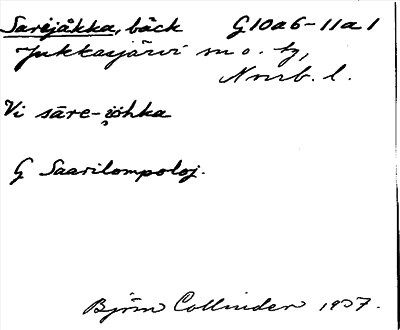 Sarejåkka, bäck G10a6-11a1
Jukkasjärvi sn o. tg,
Norrb. l.
Vi sāre-i̯ǫhka
G Saarilompoloj.
Björn Collinder 1937.